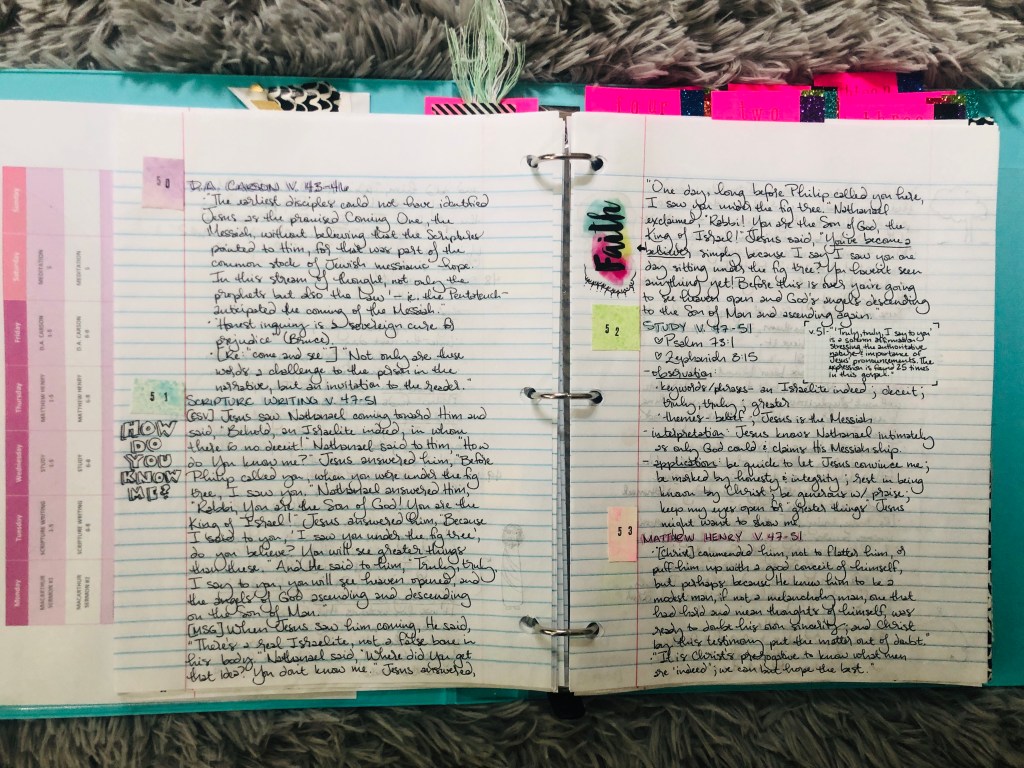 50
D.A. CARSON V. 43-46
· "The earliest disciples could not have identified
Jesus as the promised Coming One, the
Messiah, without believing that the Scriptures
pointed to Him, for that was part of the
common stock of Jewish messianic hope.
In this stream of thought, not only the
prophets but also the Law – ie. the Pentateuch –
anticipated the coming of the Messiah."
· "Honest inquiry is a sovereign cure of
prejudice" (Bruce).
· [Re: "come and see"] "Not only are these
words a challenge to the person in the
narrative, but an invitation to the reader."
51
SCRIPTURE WRITING V. 47-51
[ESV] Jesus saw Nathanael coming toward Him and
said "Behold, an Israelite indeed, in whom
there is no deceit!" Nathanael said to Him, "How
do You know me?" Jesus answered him, "Before
Philip called you, when you were under the fig
tree, I saw you." Nathanael answered Him,
"Rabbi, You are the Son of God! You are the
King of Israel!" Jesus answered him, "Because
I said to you, 'I saw you under the fig tree,'
do you believe? You will see greater things
than these." And He said to him, "Truly, truly,
I say to you, you will see heaven opened, and
the angels of God ascending and descending
on the Son of Man."
[MSG] When Jesus saw him coming, He said,
"There's a real Israelite, not a false bone in
his body." Nathanael said "Where did You get
that idea? You don't know me." Jesus answered,
HOW
DO
YOU
KNOW
ME?
Sunday
Saturday
MEDITATION
5
MEDITATION
5
Friday
D.A. CARSON
D.A. CARSON
Thursday
MATTHEW HENRY
MATTHEW HENRY
Wednesday
STUDY
STUDY
Tuesday
SCRIPTURE WRITING
SCRIPTURE WRITING
Monday
MACARTHUR
SERMON #1
MACARTHUR
SERMON #2
"One day, long before Philip called you here,
I saw you under the fig tree." Nathanael
exclaimed, "Rabbi! You are the Son of God, the
King of Israel!" Jesus said, "You've become a
believer simply because I say I saw you one
day sitting under the fig tree? You haven't seen
anything yet! Before this is over you're going
to see heaven open and God's angels descending
to the Son of Man and ascending again."
Faith
52
STUDY V. 47-51
♡ Psalm 73:1
♡ Zephaniah 3:15
v.51 - "Truly, truly, I say to you"
is a solemn affirmation
stressing the authoritative
nature & importance of
Jesus' pronouncements. The
expression is found 25 times
in this gospel.
- observation:
· keywords/phrases - an Israelite indeed; deceit;
truly, truly; greater
· themes - belief; Jesus is the Messiah
- interpretation: Jesus knows Nathanael intimately
as only God could & claims His Messiahship.
- application: be quick to let Jesus convince me;
be marked by honesty & integrity; rest in being
known by Christ; be generous w/ praise;
keep my eyes open for "greater things" Jesus
might want to show me.
53
MATTHEW HENRY V. 47-51
· "[Christ] commended him, not to flatter him, or
puff him up with a good conceit of himself,
but perhaps because He knew him to be a
modest man, if not a melancholy man, one that
had hard and mean thoughts of himself, was
ready to doubt his own sincerity; and Christ
by this testimony put the matter out of doubt."
· "It is Christ's prerogative to know what men
are 'indeed'; we can but hope the best."